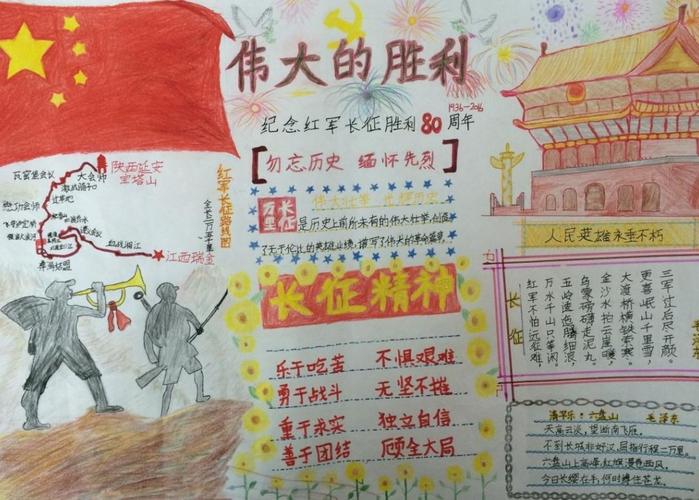 伟大的胜利
1936-2016
纪念红军长征胜利80周年
【勿忘历史 缅怀先烈】
红军长征路线图
全长二万五千里
陕西延安
宝塔山
瓦窑堡会议
大会师
江西瑞金
伟大壮举 光辉历史
万里
长征
是历史上前所未有的伟大壮举,创造
了无于伦比的英雄业绩,谱写了伟大的革命篇章
长征精神
乐于吃苦 不惧艰难
勇于战斗 无坚不摧
重于求实 独立自信
善于团结 顾全大局
人民英雄永垂不朽
长征
红军不怕远征难,
万水千山只等闲。
五岭逶迤腾细浪,
乌蒙磅礴走泥丸。
金沙水拍云崖暖,
大渡桥横铁索寒。
更喜岷山千里雪,
三军过后尽开颜。
清平乐·六盘山 毛泽东
天高云淡,望断南飞雁。
不到长城非好汉,屈指行程二万里。
六盘山上高峰,红旗漫卷西风。
今日长缨在手,何时缚住苍龙